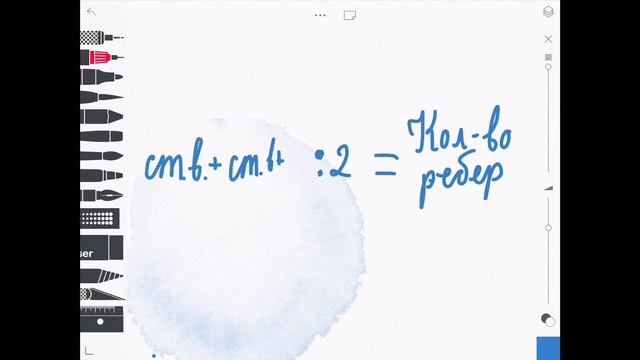 ст.в.+ ст.в+ :2 = Кол-во
ребер
ser